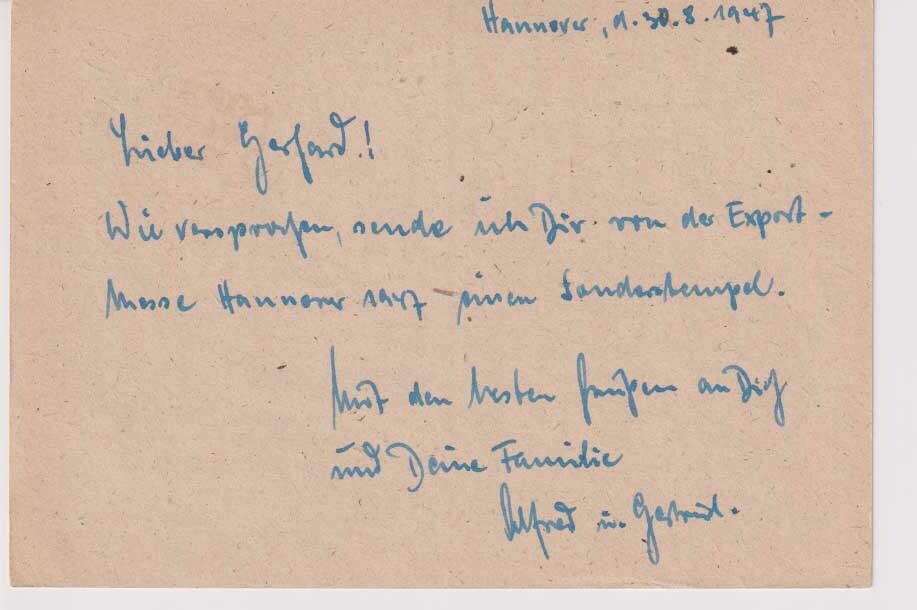 Hannover, d. 30.8.1947
Lieber Gerhard!
Wie versprochen, sende ich Dir von der Export-
Messe Hannover 1947 einen Sonderstempel.
Mit den besten Grüßen an Dich
und Deine Familie
Alfred u. Gertrud.